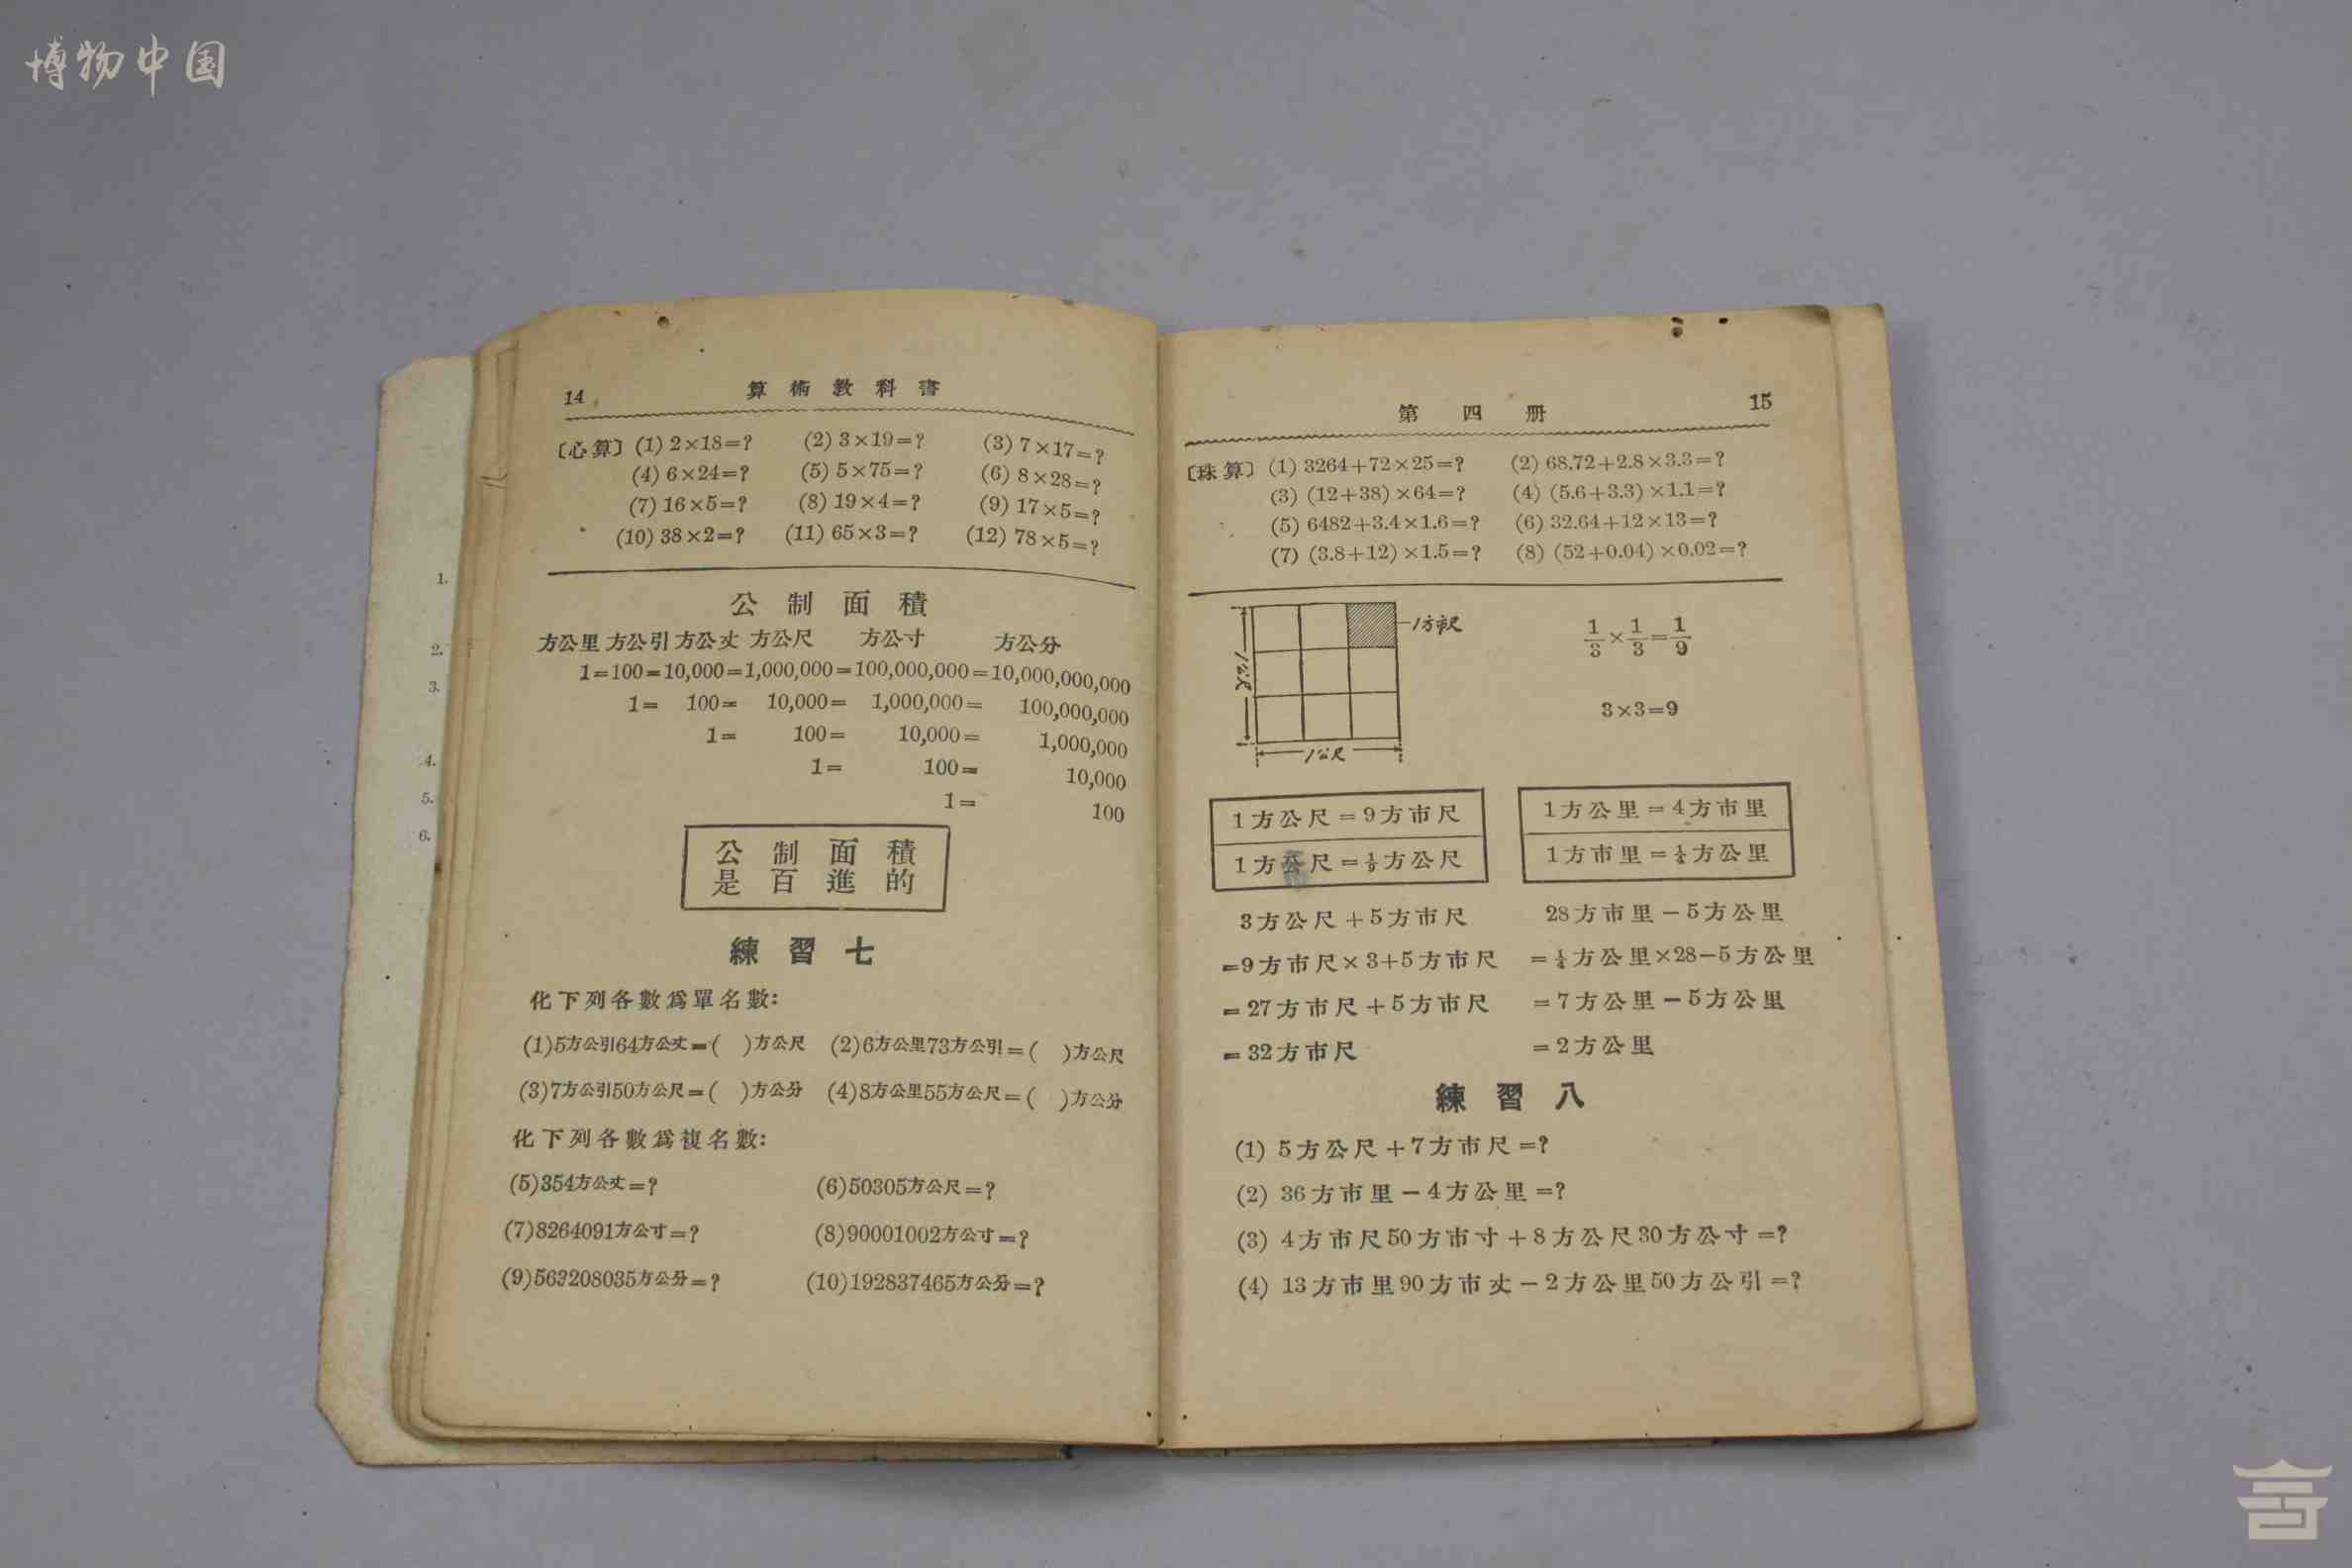 博物中国
14 算術教科書
〔心算〕(1) 2×18=? (2) 3×19=? (3) 7×17=?
(4) 6×24=? (5) 5×75=? (6) 8×28=?
(7) 16×5=? (8) 19×4=? (9) 17×5=?
(10) 38×2=? (11) 65×3=? (12) 78×5=?
公制面積
方公里 方公引 方公丈 方公尺 方公寸 方公分
1=100=10,000=1,000,000=100,000,000=10,000,000,000
1= 100= 10,000= 1,000,000= 100,000,000
1= 100= 10,000= 1,000,000
1= 100= 10,000
1= 100
公制面積
是百進的
練習七
化下列各數爲單名數:
(1)5方公引64方公丈=( )方公尺 (2)6方公里73方公引=( )方公尺
(3)7方公引50方公尺=( )方公分 (4)8方公里55方公尺=( )方公分
化下列各數爲複名數:
(5)354方公丈=? (6)50305方公尺=?
(7)8264091方公寸=? (8)90001002方公寸=?
(9)563208035方公分=? (10)192837465方公分=?
1.
2.
3.
4.
5.
6.
第四册 15
〔珠算〕(1) 3264+72×25=? (2) 68.72+2.8×3.3=?
(3) (12+38)×64=? (4) (5.6+3.3)×1.1=?
(5) 6482+3.4×1.6=? (6) 32.64+12×13=?
(7) (3.8+12)×1.5=? (8) (52+0.04)×0.02=?
1方市尺
1公尺
1公尺
1/3×1/3=1/9
3×3=9
1方公尺=9方市尺
1方尺=1/9方公尺
1方公里=4方市里
1方市里=1/4方公里
3方公尺+5方市尺
=9方市尺×3+5方市尺
=27方市尺+5方市尺
=32方市尺
28方市里-5方公里
=1/4方公里×28-5方公里
=7方公里-5方公里
=2方公里
練習八
(1) 5方公尺+7方市尺=?
(2) 36方市里-4方公里=?
(3) 4方市尺50方市寸+8方公尺30方公寸=?
(4) 13方市里90方市丈-2方公里50方公引=?